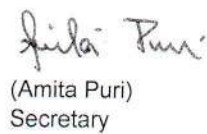 Amita Puri
(Amita Puri)
Secretary